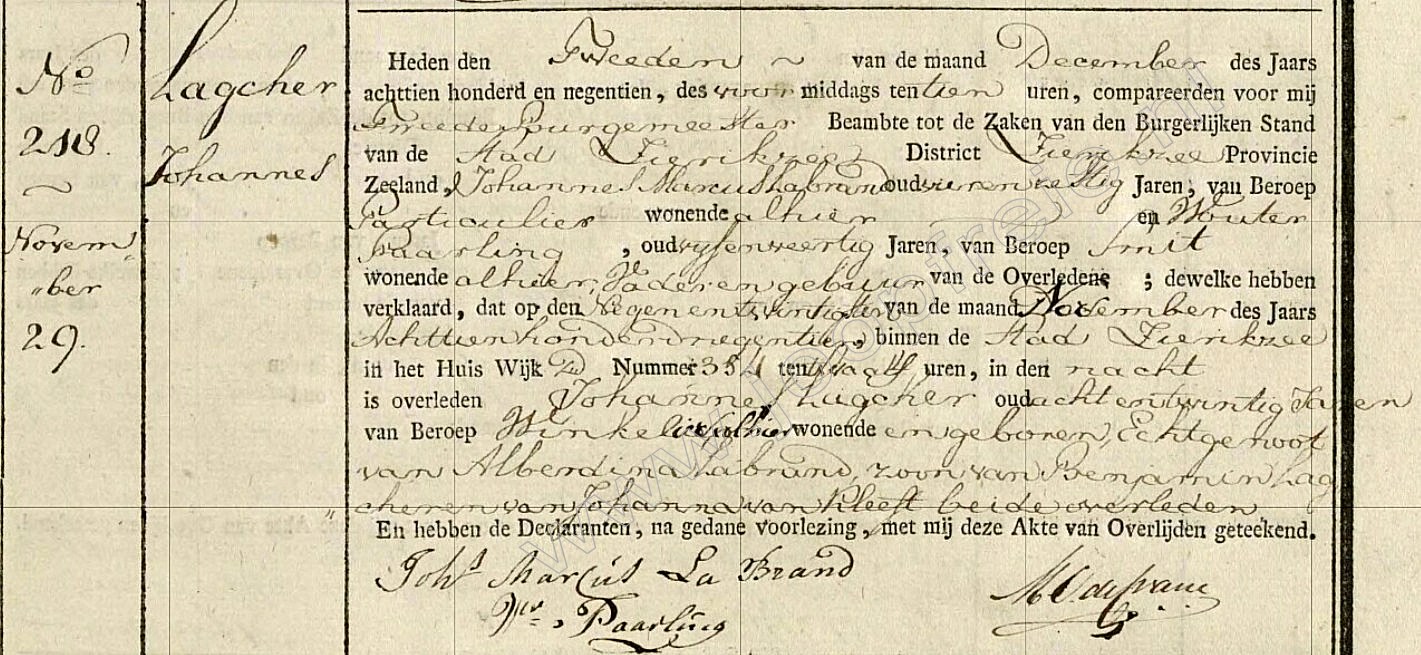 No
218.
Novem
ber
29.
Lagcher
Johannes
Heden den Tweeden van de maand December des Jaars
achttien honderd en negentien, des voor middags ten tien uren, compareerden voor mij
Tweede Burgemeester Beambte tot de Zaken van den Burgerlijken Stand
van de Stad Zierikzee District Zierikzee Provincie
Zeeland, Johannes Marcus Labrand oud vierenzestig Jaren, van Beroep
Particulier wonende alhier en Wouter
Paarling, oud vyfenveertig Jaren, van Beroep Smit
wonende alhier, Vader en gebuur van de Overledene; dewelke hebben
verklaard, dat op den Negenentwintigsten van de maand November des Jaars
Achttienhonderdnegentien, binnen de Stad Zierikzee
in het Huis Wijk Nummer ten twaalf uren, in den nacht
is overleden Johannes Lagcher oud achtentwintig Jaren
van Beroep Winkelier alhier wonende en geboren, Echtgenoot
van Alberdina Labrand, zoon van Benjamin Lag
cher en van Johanna van Kleeft beide overleden
En hebben de Declaranten, na gedane voorlezing, met mij deze Akte van Overlijden geteekend.
Johs Marcus La Brand
Wr. Paarling